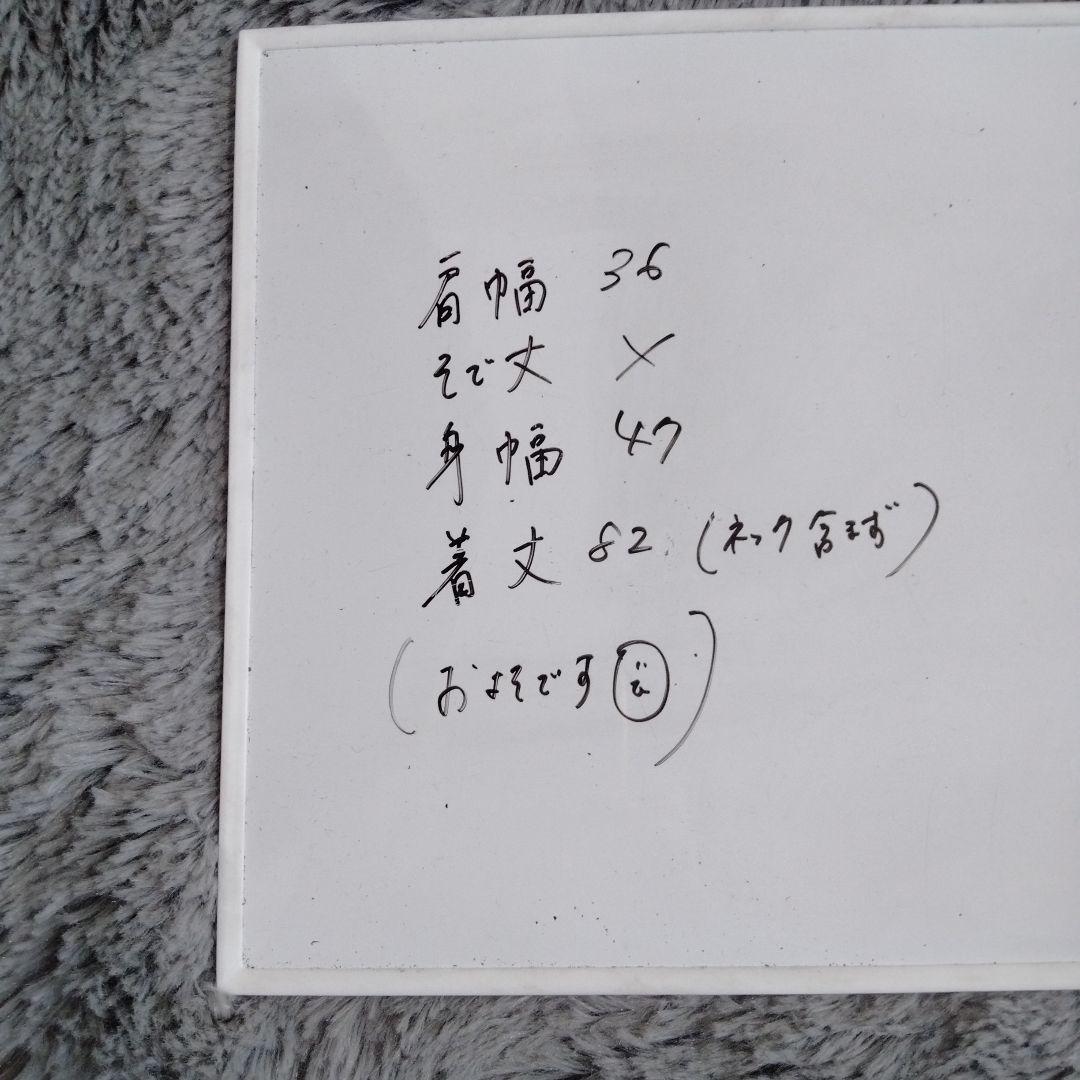 肩幅 36
そで丈 ×
身幅 47
着丈 82 (ネック含まず)
(およそです)